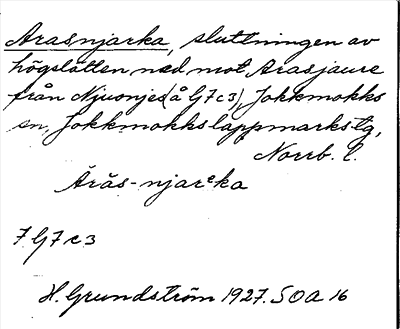 Arasnjarka, sluttningen av
högslätten ned mot Arasjaure
från Njuonjes (å G7c3), Jokkmokks
sn, Jokkmokks lappmarks tg,
Norrb. l.
Ārās-njarᵉka
7 G7c3
H. Grundström 1927. SOA 16